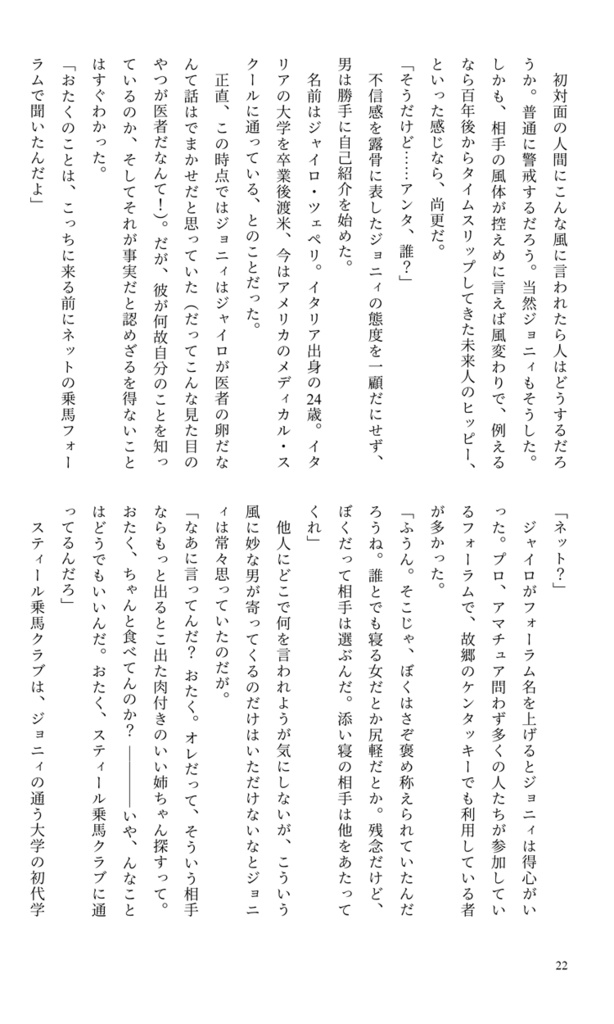 初対面の人間にこんな風に言われたら人はどうするだろ
うか。普通に警戒するだろう。当然ジョニィもそうした。
しかも、相手の風体が控えめに言えば風変わりで、例える
なら百年後からタイムスリップしてきた未来人のヒッピー、
といった感じなら、尚更だ。
「そうだけど……アンタ、誰？」
　不信感を露骨に表したジョニィの態度を一顧だにせず、
男は勝手に自己紹介を始めた。
　名前はジャイロ・ツェペリ。イタリア出身の24歳。イタ
リアの大学を卒業後渡米、今はアメリカのメディカル・ス
クールに通っている、とのことだった。
　正直、この時点ではジョニィはジャイロが医者の卵だな
んて話はでまかせだと思っていた（だってこんな見た目の
やつが医者だなんて！）。だが、彼が何故自分のことを知っ
ているのか、そしてそれが事実だと認めざるを得ないこと
はすぐわかった。
「おたくのことは、こっちに来る前にネットの乗馬フォー
ラムで聞いたんだよ」
「ネット？」
　ジャイロがフォーラム名を上げるとジョニィは得心がい
った。プロ、アマチュア問わず多くの人たちが参加してい
るフォーラムで、故郷のケンタッキーでも利用している者
が多かった。
「ふうん。そこじゃ、ぼくはさぞ褒め称えられていたんだ
ろうね。誰とでも寝る女だとか尻軽だとか。残念だけど、
ぼくだって相手は選ぶんだ。添い寝の相手は他をあたって
くれ」
　他人にどこで何を言われようが気にしないが、こういう
風に妙な男が寄ってくるのだけはいただけないなとジョニ
ィは常々思っていたのだが。
「なあに言ってんだ？　おたく。オレだって、そういう相手
ならもっと出るとこ出た肉付きのいい姉ちゃん探すって。
おたく、ちゃんと食べてんのか？　――――いや、んなこと
はどうでもいいんだ。おたく、スティール乗馬クラブに通
ってるんだろ」
　スティール乗馬クラブは、ジョニィの通う大学の初代学
22